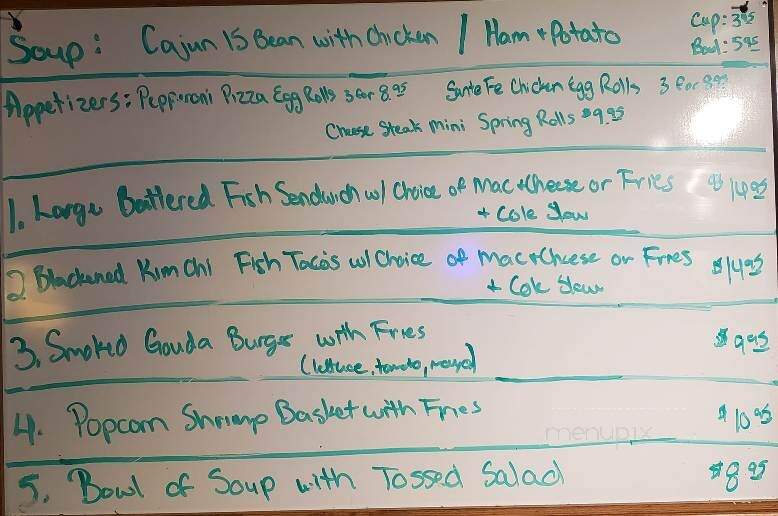 Soup: Cajun 15 Bean with Chicken / Ham + Potato Cup: 3.95
Bowl: 5.95
Appetizers: Pepperoni Pizza Egg Rolls 3 for 8.95 Sante Fe Chicken Egg Rolls 3 for 8.95
Cheese Steak Mini Spring Rolls $9.95
1. Large Battered Fish Sandwich w/ Choice of Mac + Cheese or Fries $14.95
+ Cole Slaw
2 Blackened Kim Chi Fish Tacos w/ Choice of Mac + Cheese or Fries $14.95
+ Cole Slaw
3. Smoked Gouda Burger with Fries $9.95
(lettuce, tomato, mayo)
4. Popcorn Shrimp Basket with Fries $10.95
menupix
5. Bowl of Soup with Tossed Salad $8.95